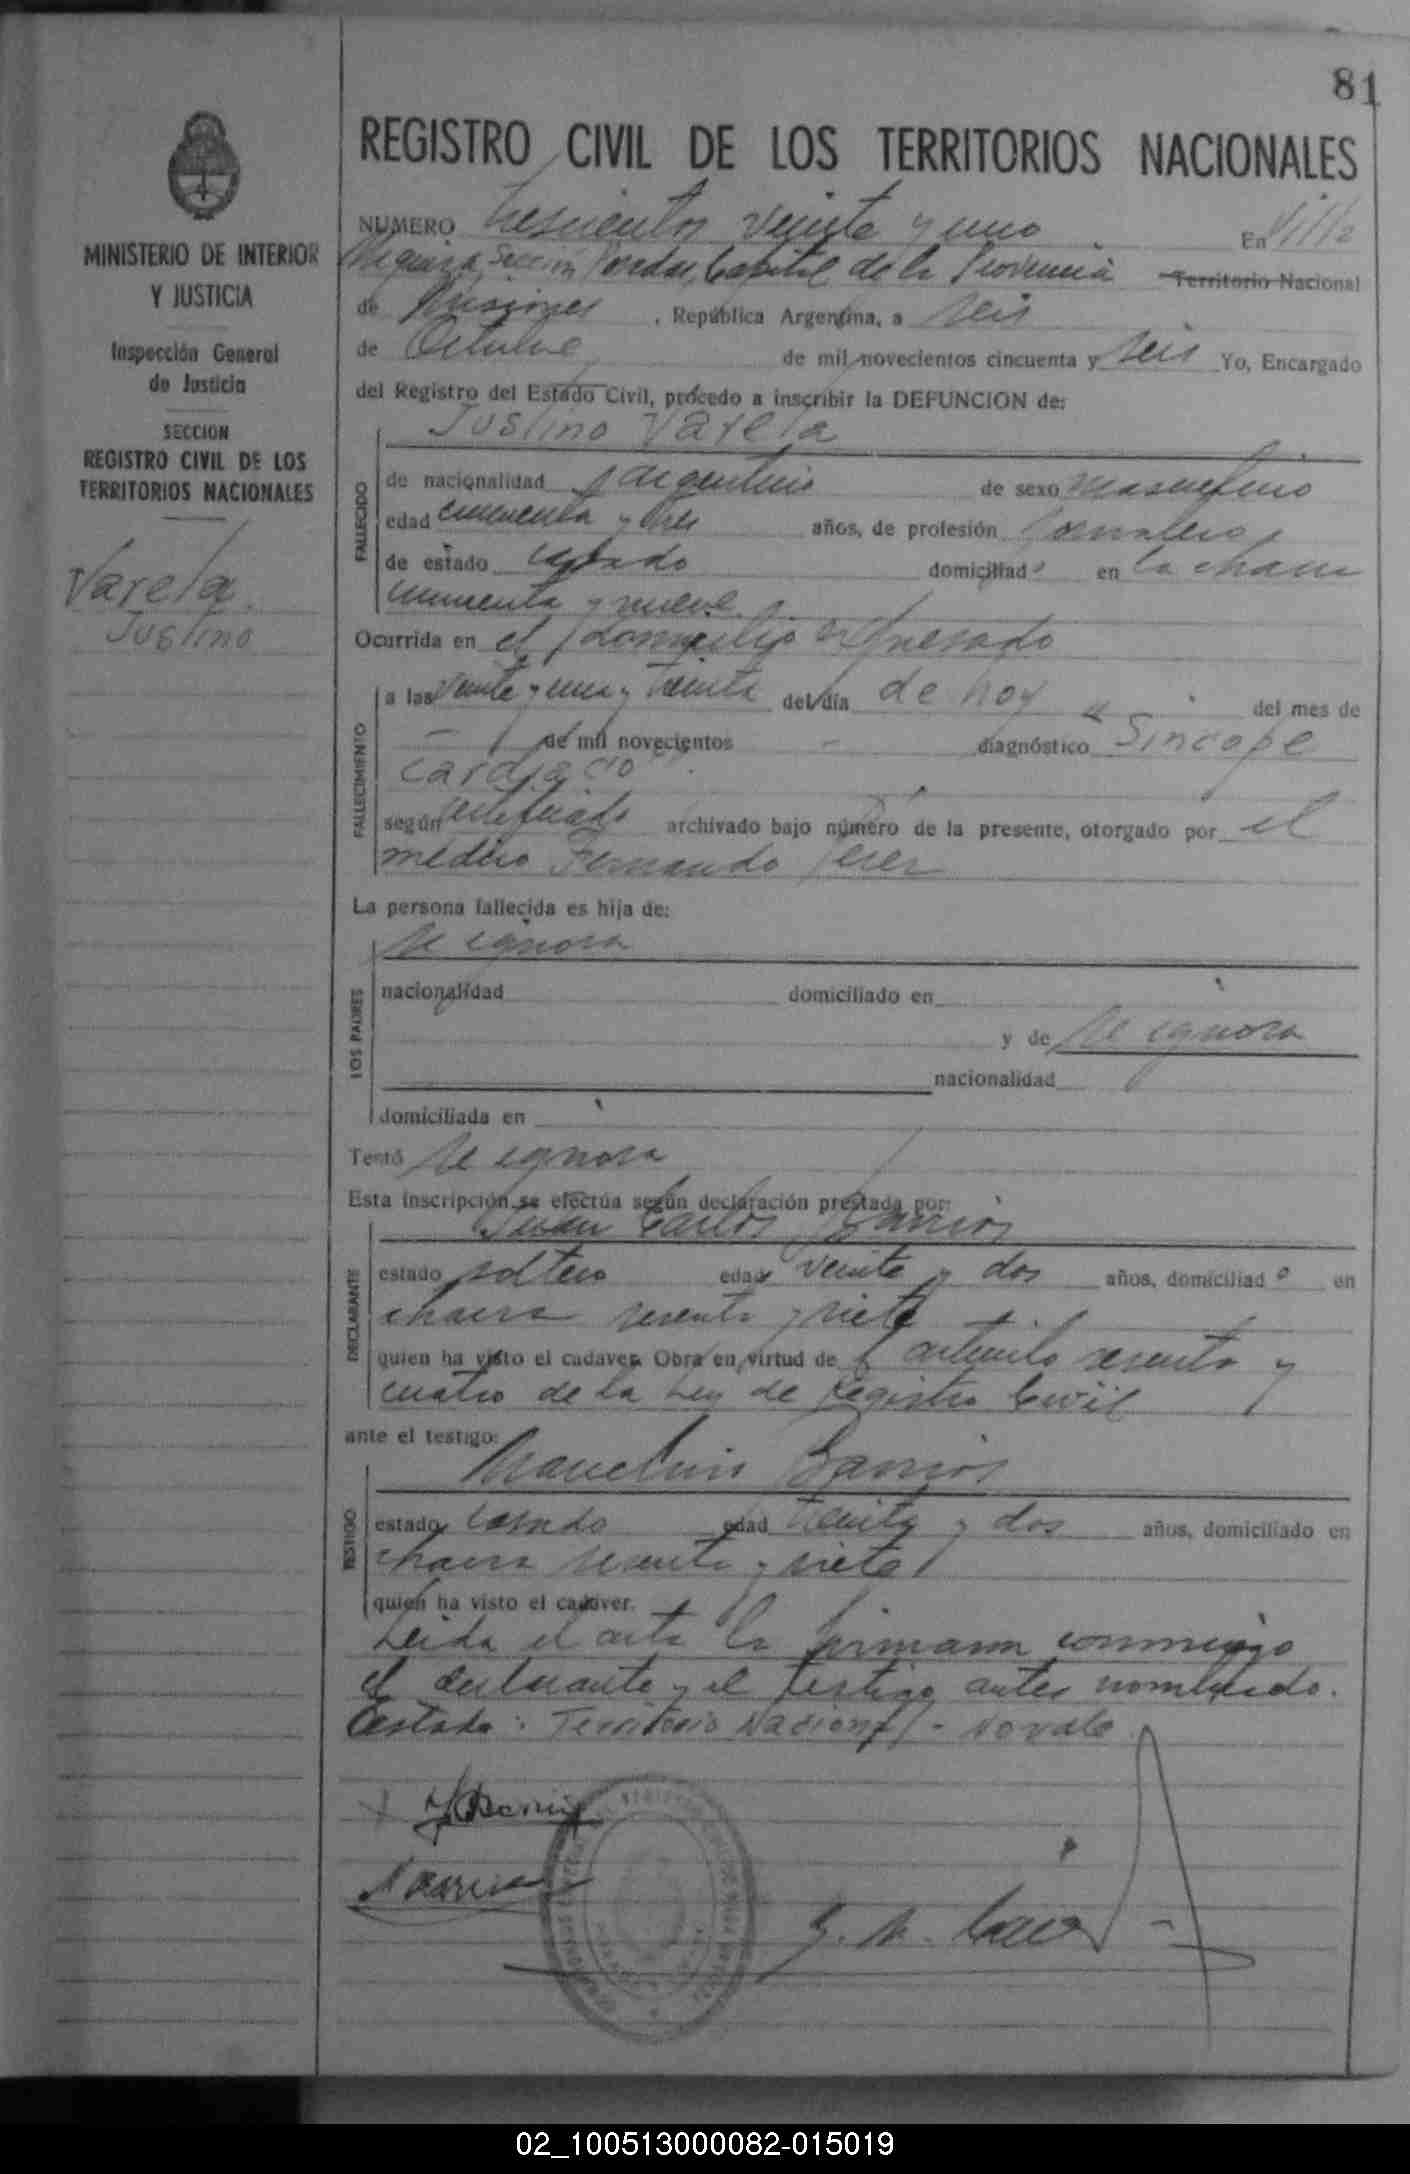 81
REGISTRO CIVIL DE LOS TERRITORIOS NACIONALES
MINISTERIO DE INTERIOR
Y JUSTICIA
Inspección General
de Justicia
SECCION
REGISTRO CIVIL DE LOS
TERRITORIOS NACIONALES
Varela
Justino
NUMERO trescientos veinte y uno En Villa
Sección Posadas, Capital de la Provincia Territorio Nacional
de Misiones, República Argentina, a seis
de Octubre de mil novecientos cincuenta y seis Yo, Encargado
del Registro del Estado Civil, procedo a inscribir la DEFUNCION de:
Justino Varela
FALLECIDO
de nacionalidad argentino de sexo masculino
edad cincuenta y tres años, de profesión Jornalero
de estado casado domiciliado en la chacra
cincuenta y nueve
Ocurrida en el domicilio expresado
FALLECIMIENTO
a las veinte y una y treinta del día de hoy " del mes de
- de mil novecientos - diagnóstico "Sincope
cardiaco".
según certificado archivado bajo número de la presente, otorgado por el
médico Fernando Perez
La persona fallecida es hija de:
LOS PADRES
se ignora
nacionalidad domiciliado en
y de se ignora
nacionalidad
domiciliada en
Testó se ignora
Esta inscripción se efectúa según declaración prestada por:
Juan Carlos Barrios
DECLARANTE
estado soltero edad veinte y dos años, domiciliado en
chacra sesenta y siete
quien ha visto el cadaver. Obra en virtud del artículo sesenta y
cuatro de la Ley de Registro Civil
ante el testigo:
Marcelino Barrios
TESTIGO
estado casado edad treinta y dos años, domiciliado en
chacra sesenta y siete
quien ha visto el cadaver.
Leida el acta la firmaron conmigo
el declarante y el testigo antes nombrado.
Testado: Territorio Nacional - No vale
02_100513000082-015019